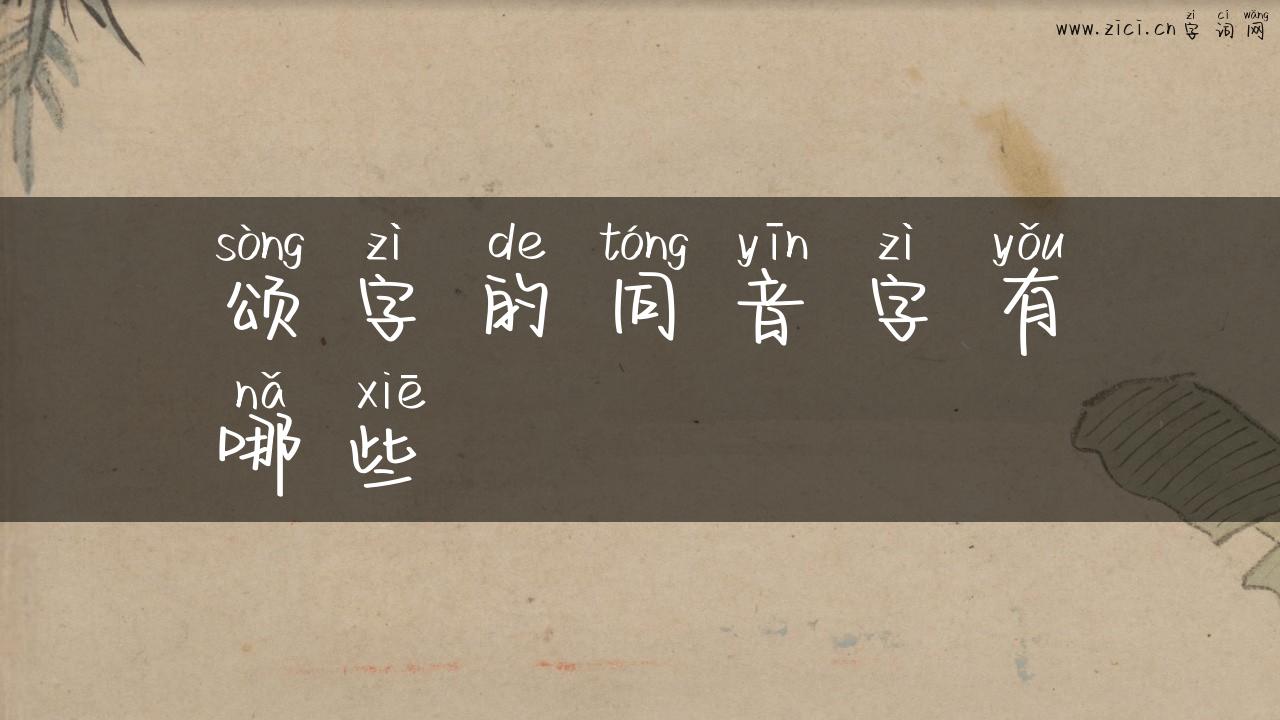 zì cí wǎng
www.zici.cn 字词网
sòng zì de tóng yīn zì yǒu
颂字的同音字有
nǎ xiē
哪些